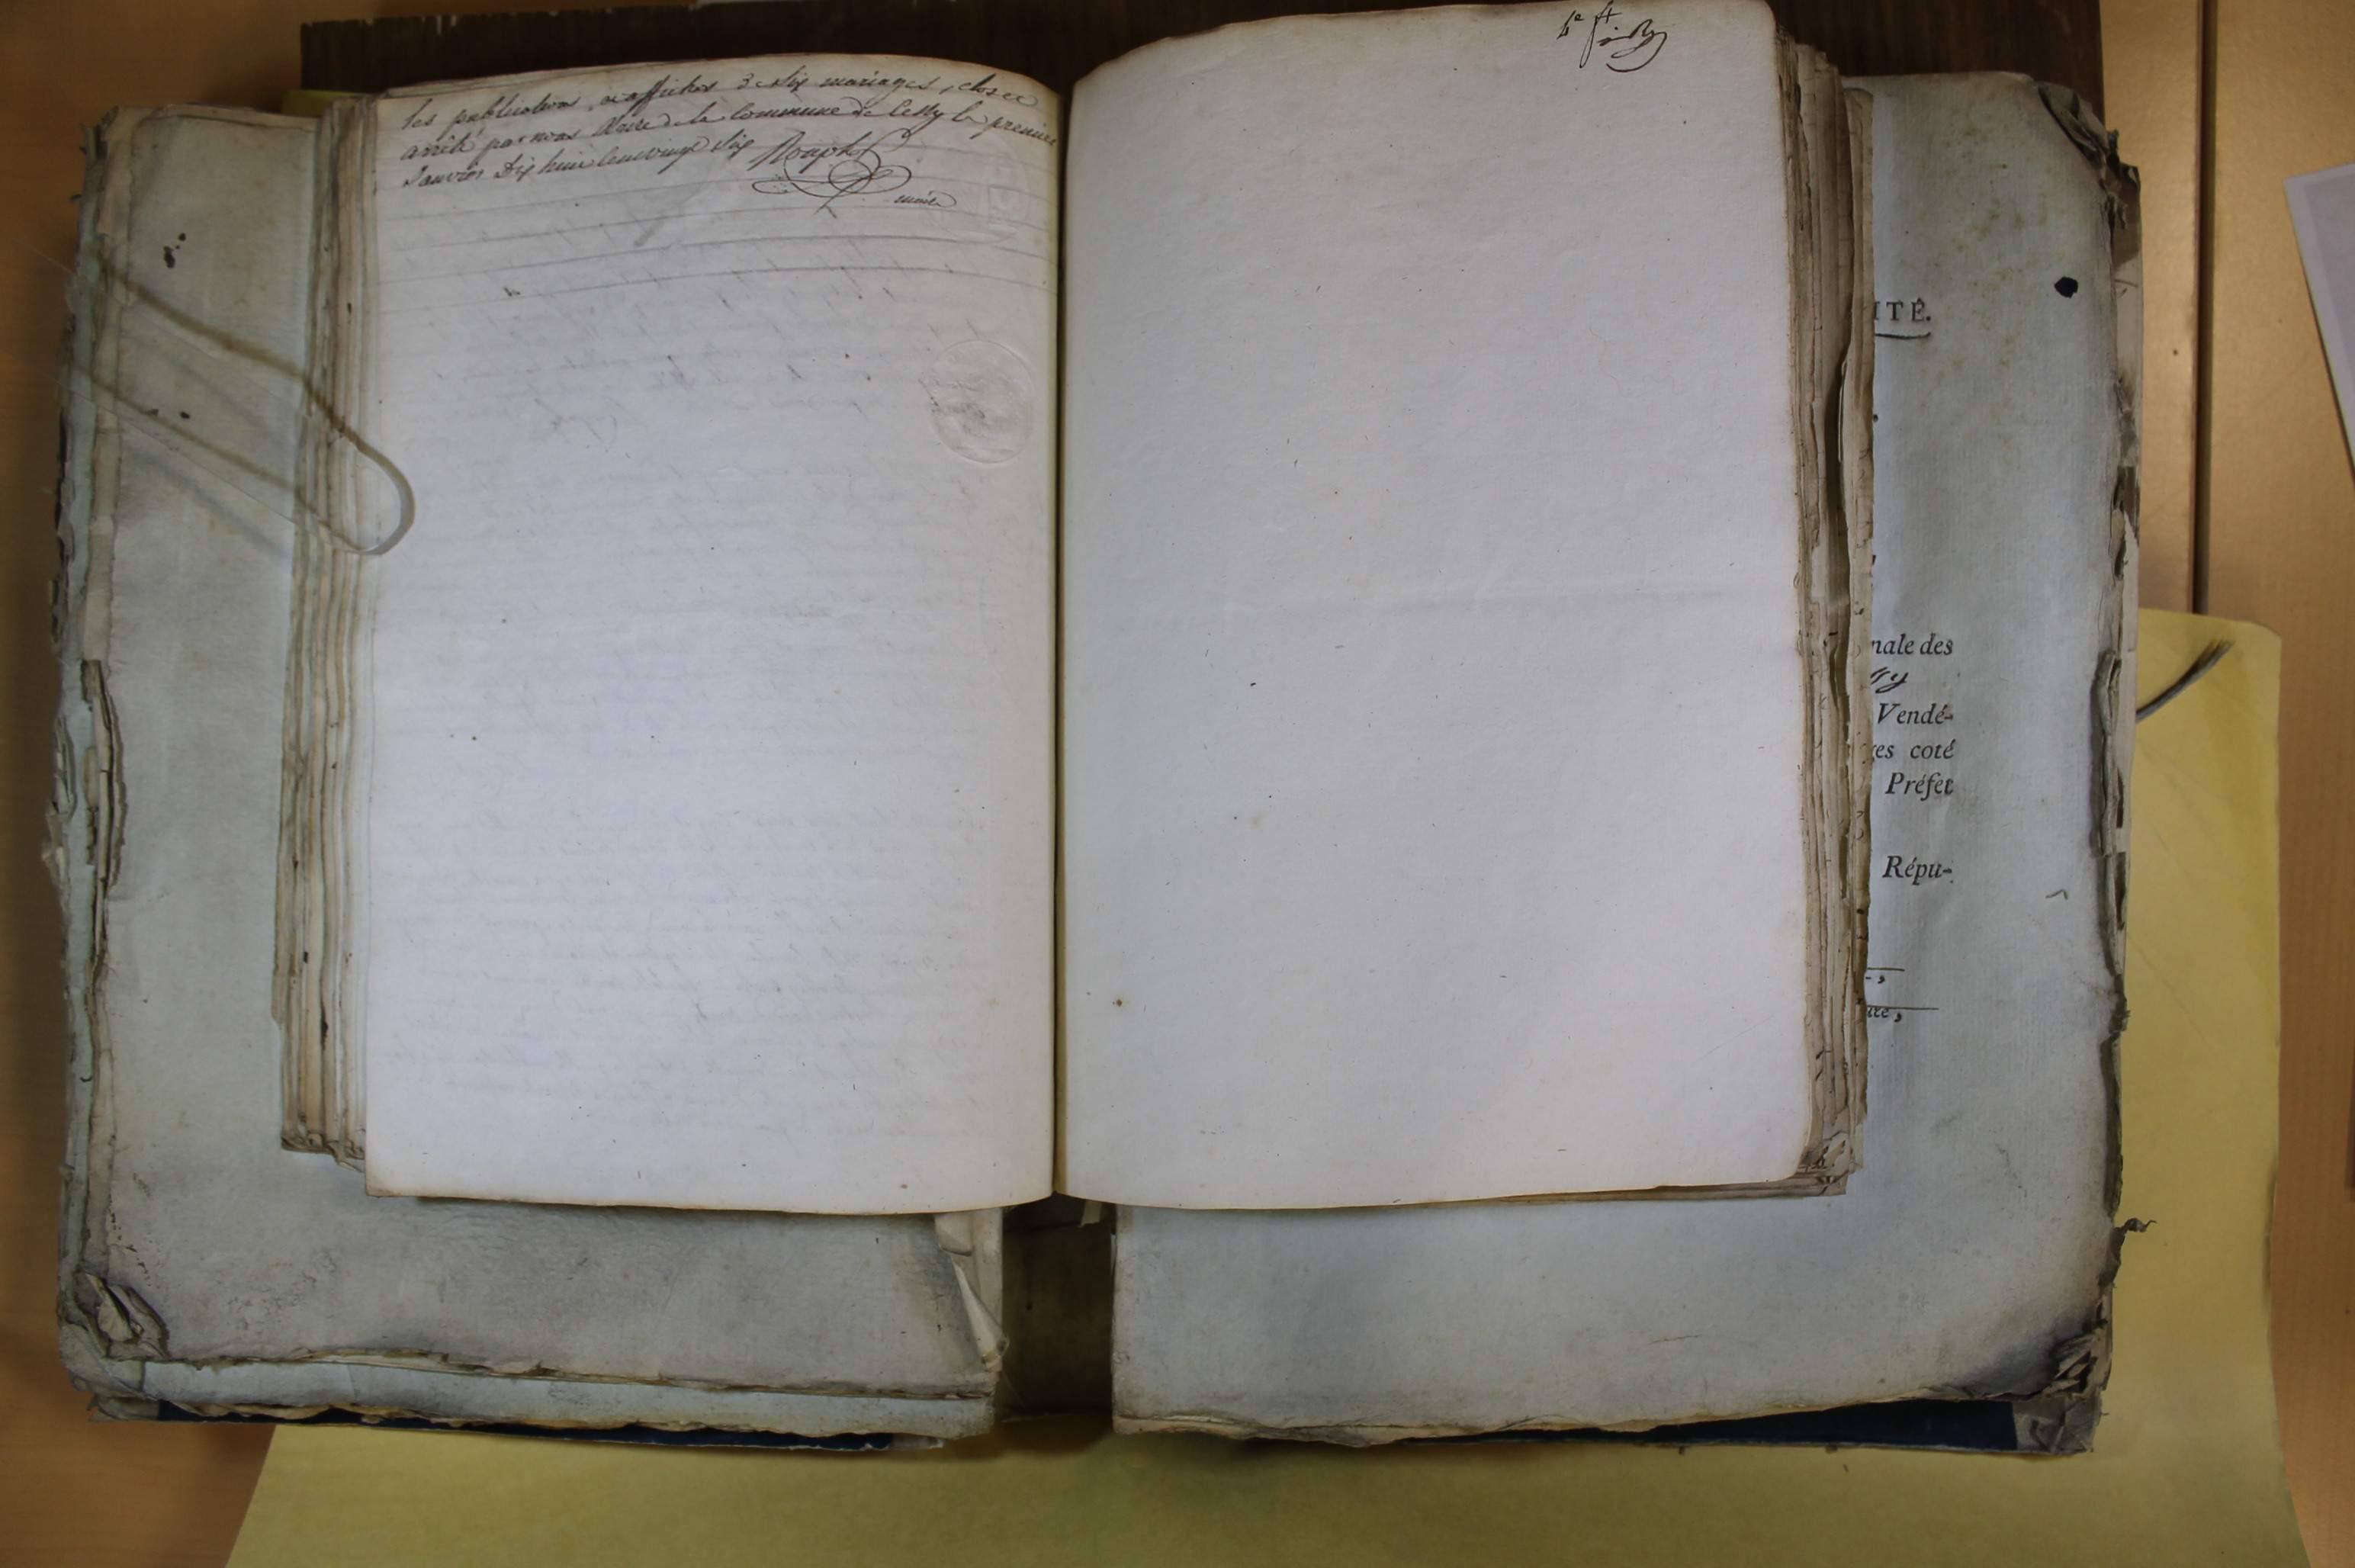 les publications, et affiches de dix mariages, clos et
arrêté par nous Maire de la Commune de Cessy le premier
Janvier Dix huit cent vingt six
maire
ITÉ.
nale des
ssy
Vendé-
ges coté
Préfet
Répu-